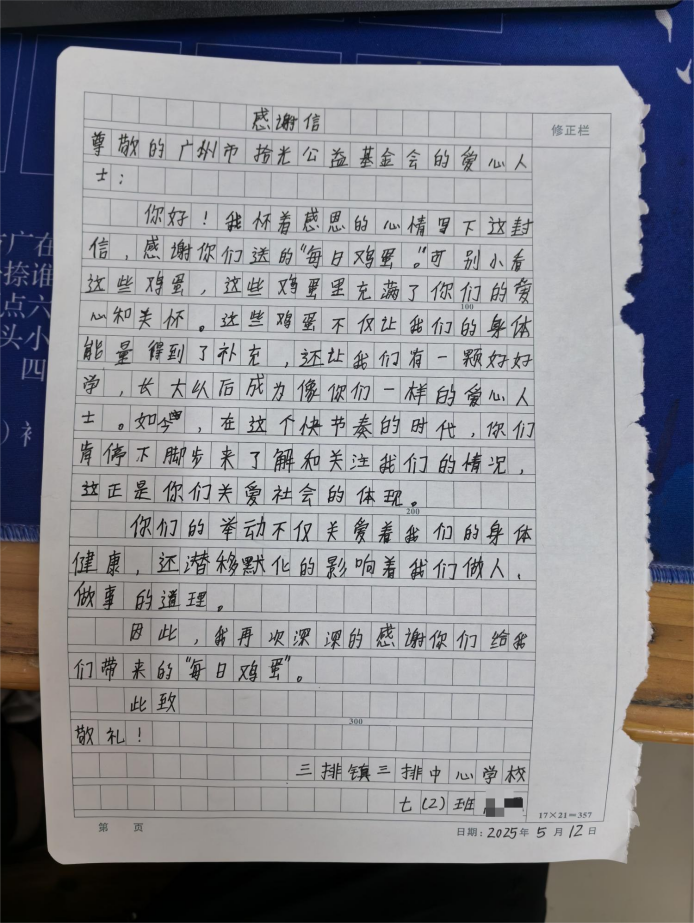 感谢信
修正栏
尊敬的广州市拾光公益基金会的爱心人
士：
你好！我怀着感恩的心情写下这封
信，感谢你们送的“每日鸡蛋。”可别小看
这些鸡蛋，这些鸡蛋里充满了你们的爱
100
心和关怀。这些鸡蛋不仅让我们的身体
能量得到了补充，还让我们有一颗好好
学，长大以后成为像你们一样的爱心人
士。如今，在这个快节奏的时代，你们
肯停下脚步来了解和关注我们的情况，
这正是你们关爱社会的体现。
200
你们的举动不仅关爱着我们的身体
健康，还潜移默化的影响着我们做人、
做事的道理。
因此，我再次深深的感谢你们给我
们带来的“每日鸡蛋”。
此致
300
敬礼！
三排镇三排中心学校
七(2)班
17×21=357
第 页
日期：2025年5月12日
广在
捺谁
点六
头小
四
）衤